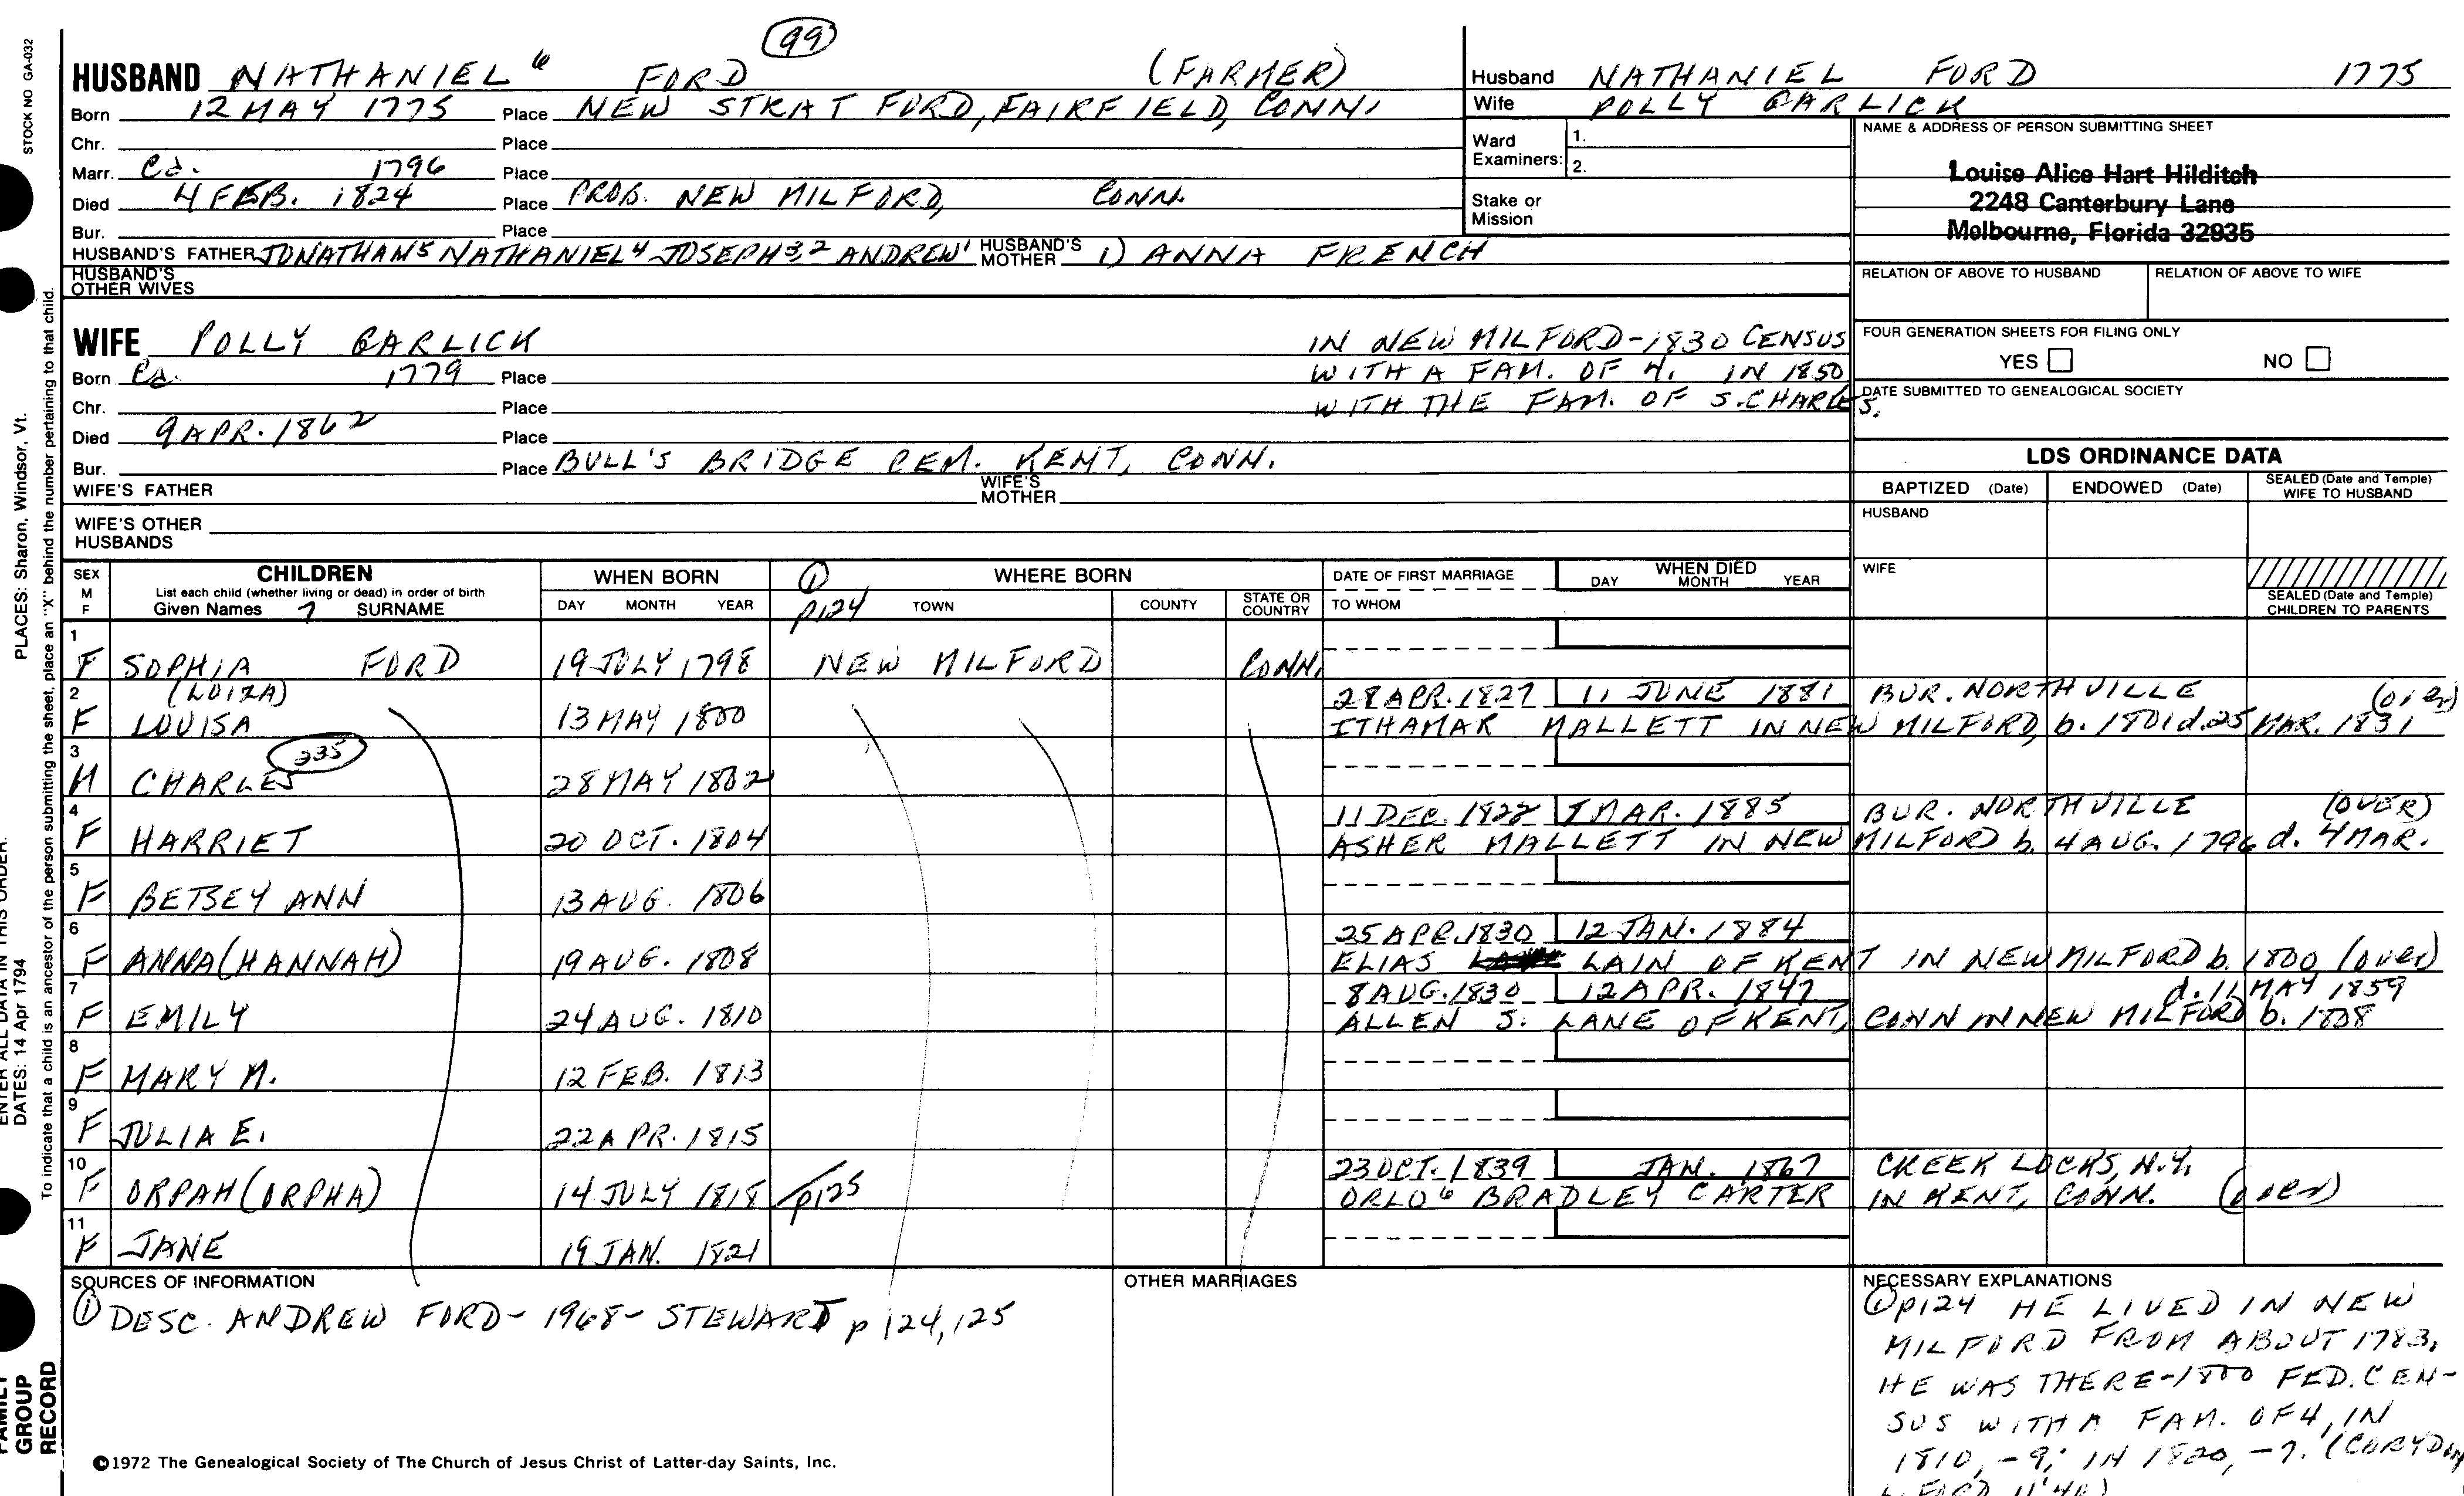 99
HUSBAND NATHANIEL 6 FORD (FARMER)
Born 12 MAY 1775 Place NEW STRATFORD, FAIRFIELD, CONN.
Chr. Place
Marr. Ca. 1796 Place
Died 4 FEB. 1824 Place PROB. NEW MILFORD, CONN.
Bur. Place
HUSBAND'S FATHER JONATHAN5 NATHANIEL4 JOSEPH3,2 ANDREW1 HUSBAND'S MOTHER 1) ANNA FRENCH
HUSBAND'S OTHER WIVES
Husband NATHANIEL FORD 1775
Wife POLLY GARLICK
Ward Examiners: 1.
2.
Stake or Mission
NAME & ADDRESS OF PERSON SUBMITTING SHEET
Louise Alice Hart Hilditch
2248 Canterbury Lane
Melbourne, Florida 32935
RELATION OF ABOVE TO HUSBAND RELATION OF ABOVE TO WIFE
FOUR GENERATION SHEETS FOR FILING ONLY
YES NO
DATE SUBMITTED TO GENEALOGICAL SOCIETY
WIFE POLLY GARLICK
Born Ca. 1779 Place
Chr. Place
Died 9 APR. 1862 Place
Bur. Place BULL'S BRIDGE CEM. KENT, CONN.
WIFE'S FATHER WIFE'S MOTHER
WIFE'S OTHER HUSBANDS
IN NEW MILFORD-1830 CENSUS
WITH A FAM. OF 4. IN 1850
WITH THE FAM. OF S. CHARLES.
LDS ORDINANCE DATA
BAPTIZED (Date) ENDOWED (Date) SEALED (Date and Temple) WIFE TO HUSBAND
HUSBAND
WIFE
SEALED (Date and Temple) CHILDREN TO PARENTS
SEX M F
CHILDREN
List each child (whether living or dead) in order of birth
Given Names SURNAME
WHEN BORN
DAY MONTH YEAR
① p124
WHERE BORN
TOWN COUNTY STATE OR COUNTRY
DATE OF FIRST MARRIAGE
TO WHOM
WHEN DIED
DAY MONTH YEAR
1 F SOPHIA FORD 19 JULY 1798 NEW MILFORD CONN.
(LOIZA)
2 F LOUISA 13 MAY 1800 28 APR. 1827 11 JUNE 1881 BUR. NORTHVILLE (over)
ITHAMAR MALLETT IN NEW MILFORD, b. 1801 d. 25 MAR. 1831
3 M CHARLES 335 28 MAY 1802
4 F HARRIET 20 OCT. 1804 11 DEC. 1822 7 MAR. 1885 BUR. NORTHVILLE (OVER)
ASHER MALLETT IN NEW MILFORD b. 4 AUG. 1796 d. 4 MAR.
5 F BETSEY ANN 13 AUG. 1806
6 F ANNA (HANNAH) 19 AUG. 1808 25 APR. 1830 12 JAN. 1884
ELIAS LAIN OF KENT IN NEW MILFORD b. 1800 (over)
d. 11 MAY 1859
7 F EMILY 24 AUG. 1810 8 AUG. 1830 12 APR. 1847
ALLEN S. LANE OF KENT, CONN IN NEW MILFORD b. 1808
8 F MARY M. 12 FEB. 1813
9 F JULIA E. 22 APR. 1815
10 F ORPAH (ORPHA) 14 JULY 1818 p125 23 OCT. 1839 JAN. 1867 CREEK LOCKS, N.Y.
ORLO6 BRADLEY CARTER IN KENT, CONN. (over)
11 F JANE 19 JAN. 1821
SOURCES OF INFORMATION
① DESC. ANDREW FORD - 1968 - STEWARD p 124, 125
OTHER MARRIAGES
NECESSARY EXPLANATIONS
① p124 HE LIVED IN NEW
MILFORD FROM ABOUT 1783.
HE WAS THERE-1800 FED. CEN-
SUS WITH A FAM. OF 4, IN
1810, -9; IN 1820, -7. (CORYDON
L. FORD
©1972 The Genealogical Society of The Church of Jesus Christ of Latter-day Saints, Inc.
STOCK NO GA-032
PLACES: Sharon, Windsor, Vt.
To indicate that a child is an ancestor of the person submitting the sheet, place an "X" behind the number pertaining to that child.
ENTER ALL DATA IN THIS ORDER:
DATES: 14 Apr 1794
FAMILY GROUP RECORD